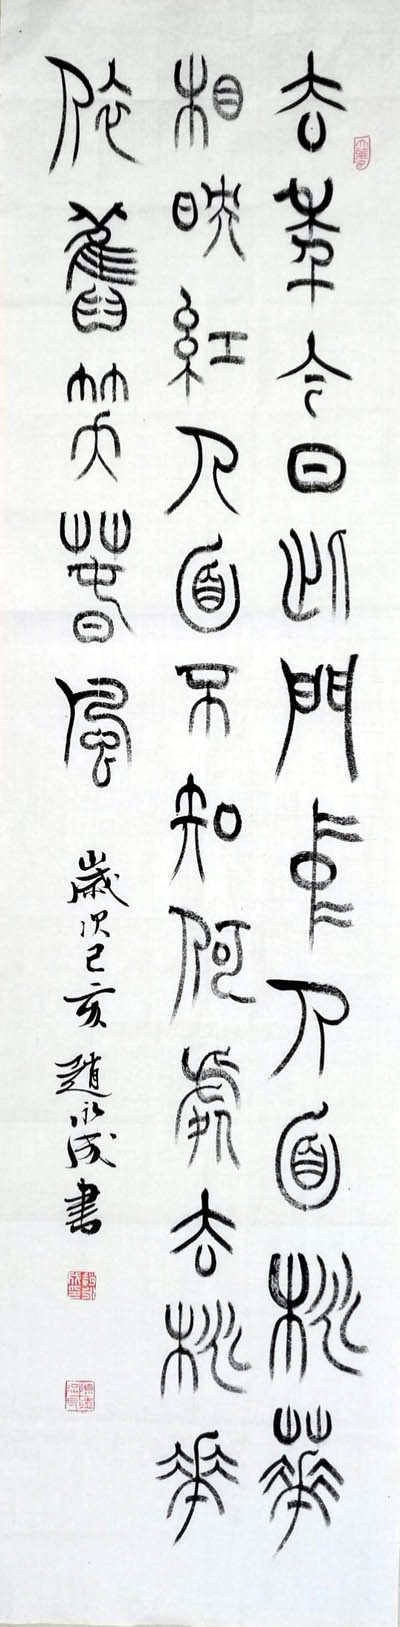 去年今日此門中人面桃華
相映紅人面不知何處去桃華
依舊笑春風
歲次己亥趙永成書